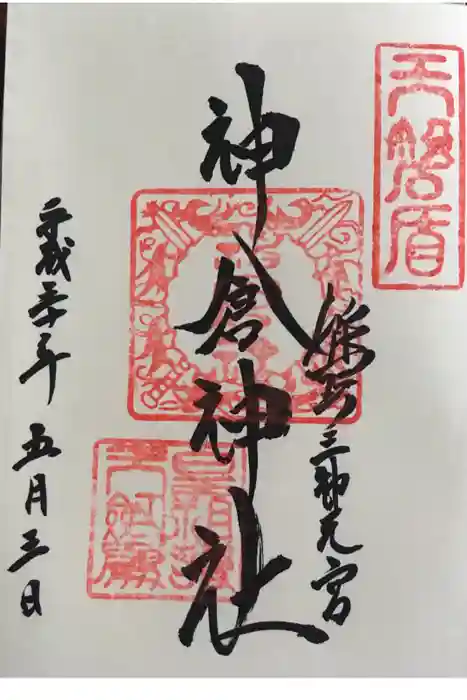 天磐盾
熊野三神元宮
神倉神社
平成三十年 五月三日